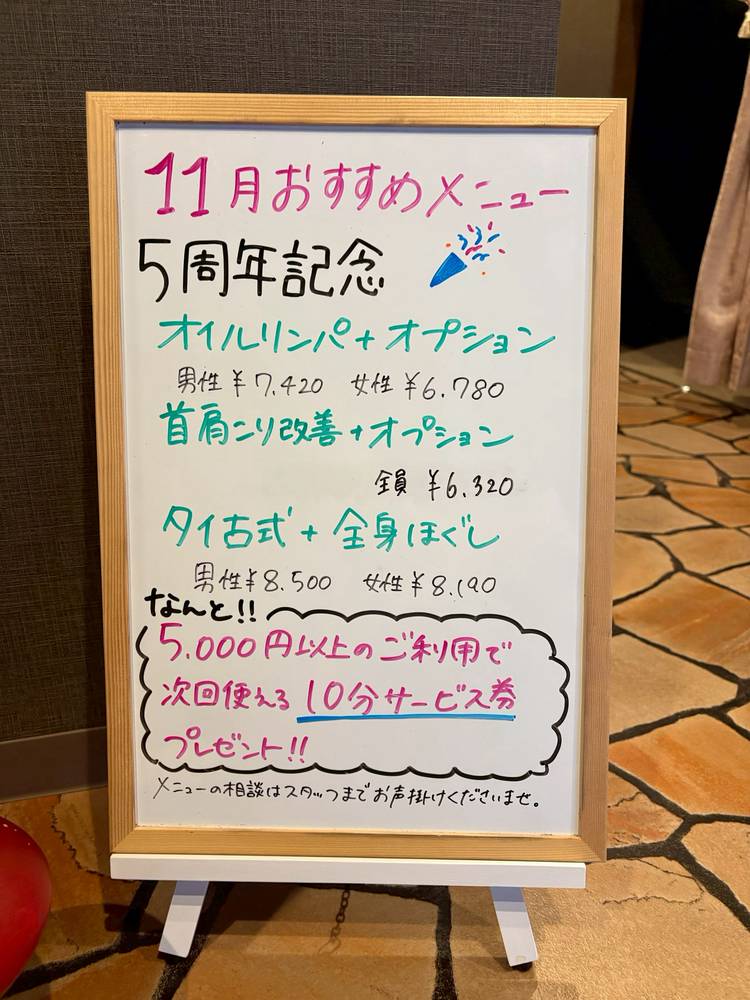 11月おすすめメニュー
5周年記念
オイルリンパ+オプション
男性¥7,420 女性¥6,780
首肩こり改善+オプション
全員 ¥6,320
タイ古式+全身ほぐし
男性¥8,500 女性¥8,190
なんと!!
5,000円以上のご利用で
次回使える10分サービス券
プレゼント!!
メニューの相談はスタッフまでお声掛けくださいませ。